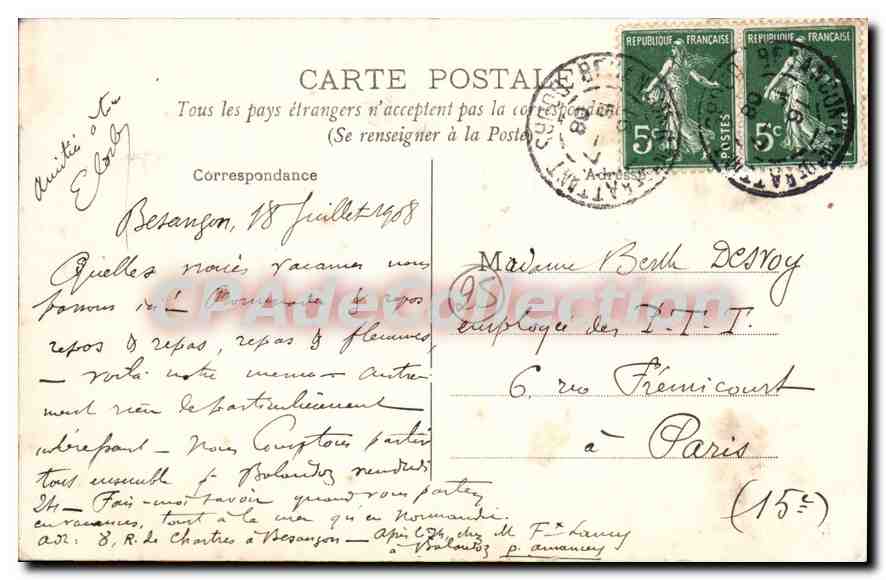 CARTE POSTALE
Tous les pays étrangers n'acceptent pas la correspondance
(Se renseigner à la Poste)
RÉPUBLIQUE FRANÇAISE
5c
POSTES
RÉPUBLIQUE FRANÇAISE
5c
BESANCON
DOUBS
BESANCON
Correspondance
Adresse
Amitiés
Besançon, 18 Juillet 1908
Quelles vacances nous
passons ici! Promenade & repos
repos & repas, repas & flemmes,
— voilà notre menu — Autre-
ment rien de particulièrement
intéressant — Nous comptons partir
tous ensemble p. Bolandoz vendredi
24 — Fais-moi savoir quand vous partez
en vacances, tant à la mer qu'en Normandie.
adr: 8, R. de Chartres à Besançon — Après le 24, chez M
à Bolandoz p. amancey
Madame Berthe Desvoy
employée des P.T.T.
6, rue Frémicourt
à Paris
95
(15c)
CPADeCollection.com